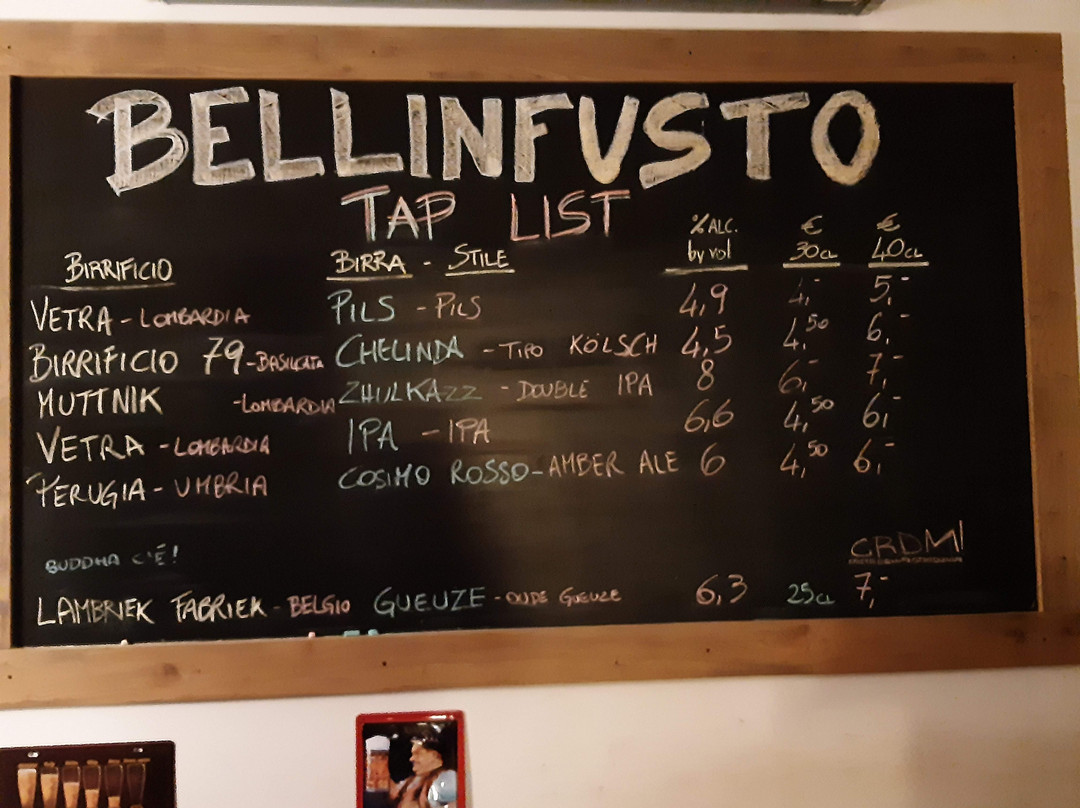 BELLINFUSTO
TAP LIST
BIRRIFICIO BIRRA - STILE % ALC. by vol € 30CL € 40CL
VETRA - LOMBARDIA PILS - PILS 4,9 4,- 5,-
BIRRIFICIO 79 - BASILICATA CHELINDA - TIPO KÖLSCH 4,5 4,50 6,-
MUTTNIK - LOMBARDIA ZHULKAZZ - DOUBLE IPA 8 6,- 7,-
VETRA - LOMBARDIA IPA - IPA 6,6 4,50 6,-
PERUGIA - UMBRIA COSIMO ROSSO - AMBER ALE 6 4,50 6,-
BUDDHA C'È! GRDM!
LAMBRIEK FABRIEK - BELGIO GUEUZE - OUDE GUEUZE 6,3 25CL 7,-